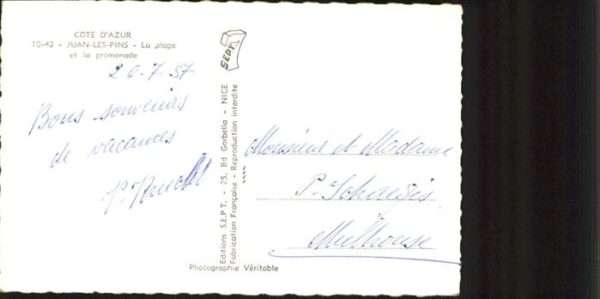 COTE D'AZUR
10-42 - JUAN-LES-PINS - La plage
et la promenade
26.7.57
Bons souvenirs
de vacances
SEPT
Editions S.E.P.T. - 25, Bd Gorbella - NICE
Fabrication Française - Reproduction interdite
Photographie Véritable
Monsieur et Madame
P.
Mulhouse